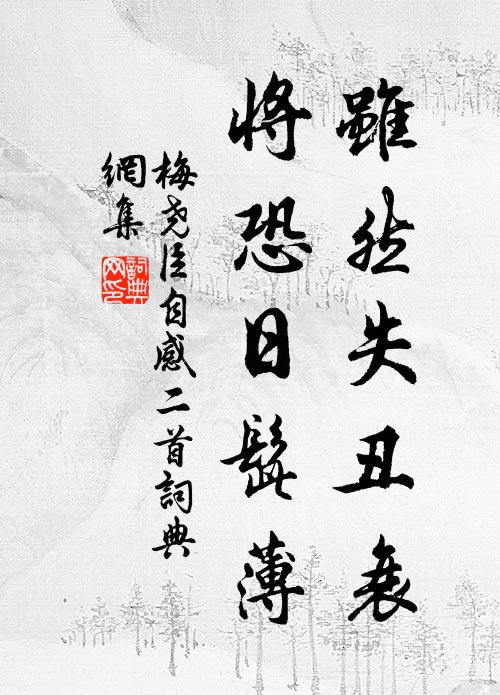 雖然失丑衰
將恐日髭薄
梅堯臣自感二首詞典
網集
詞典網印